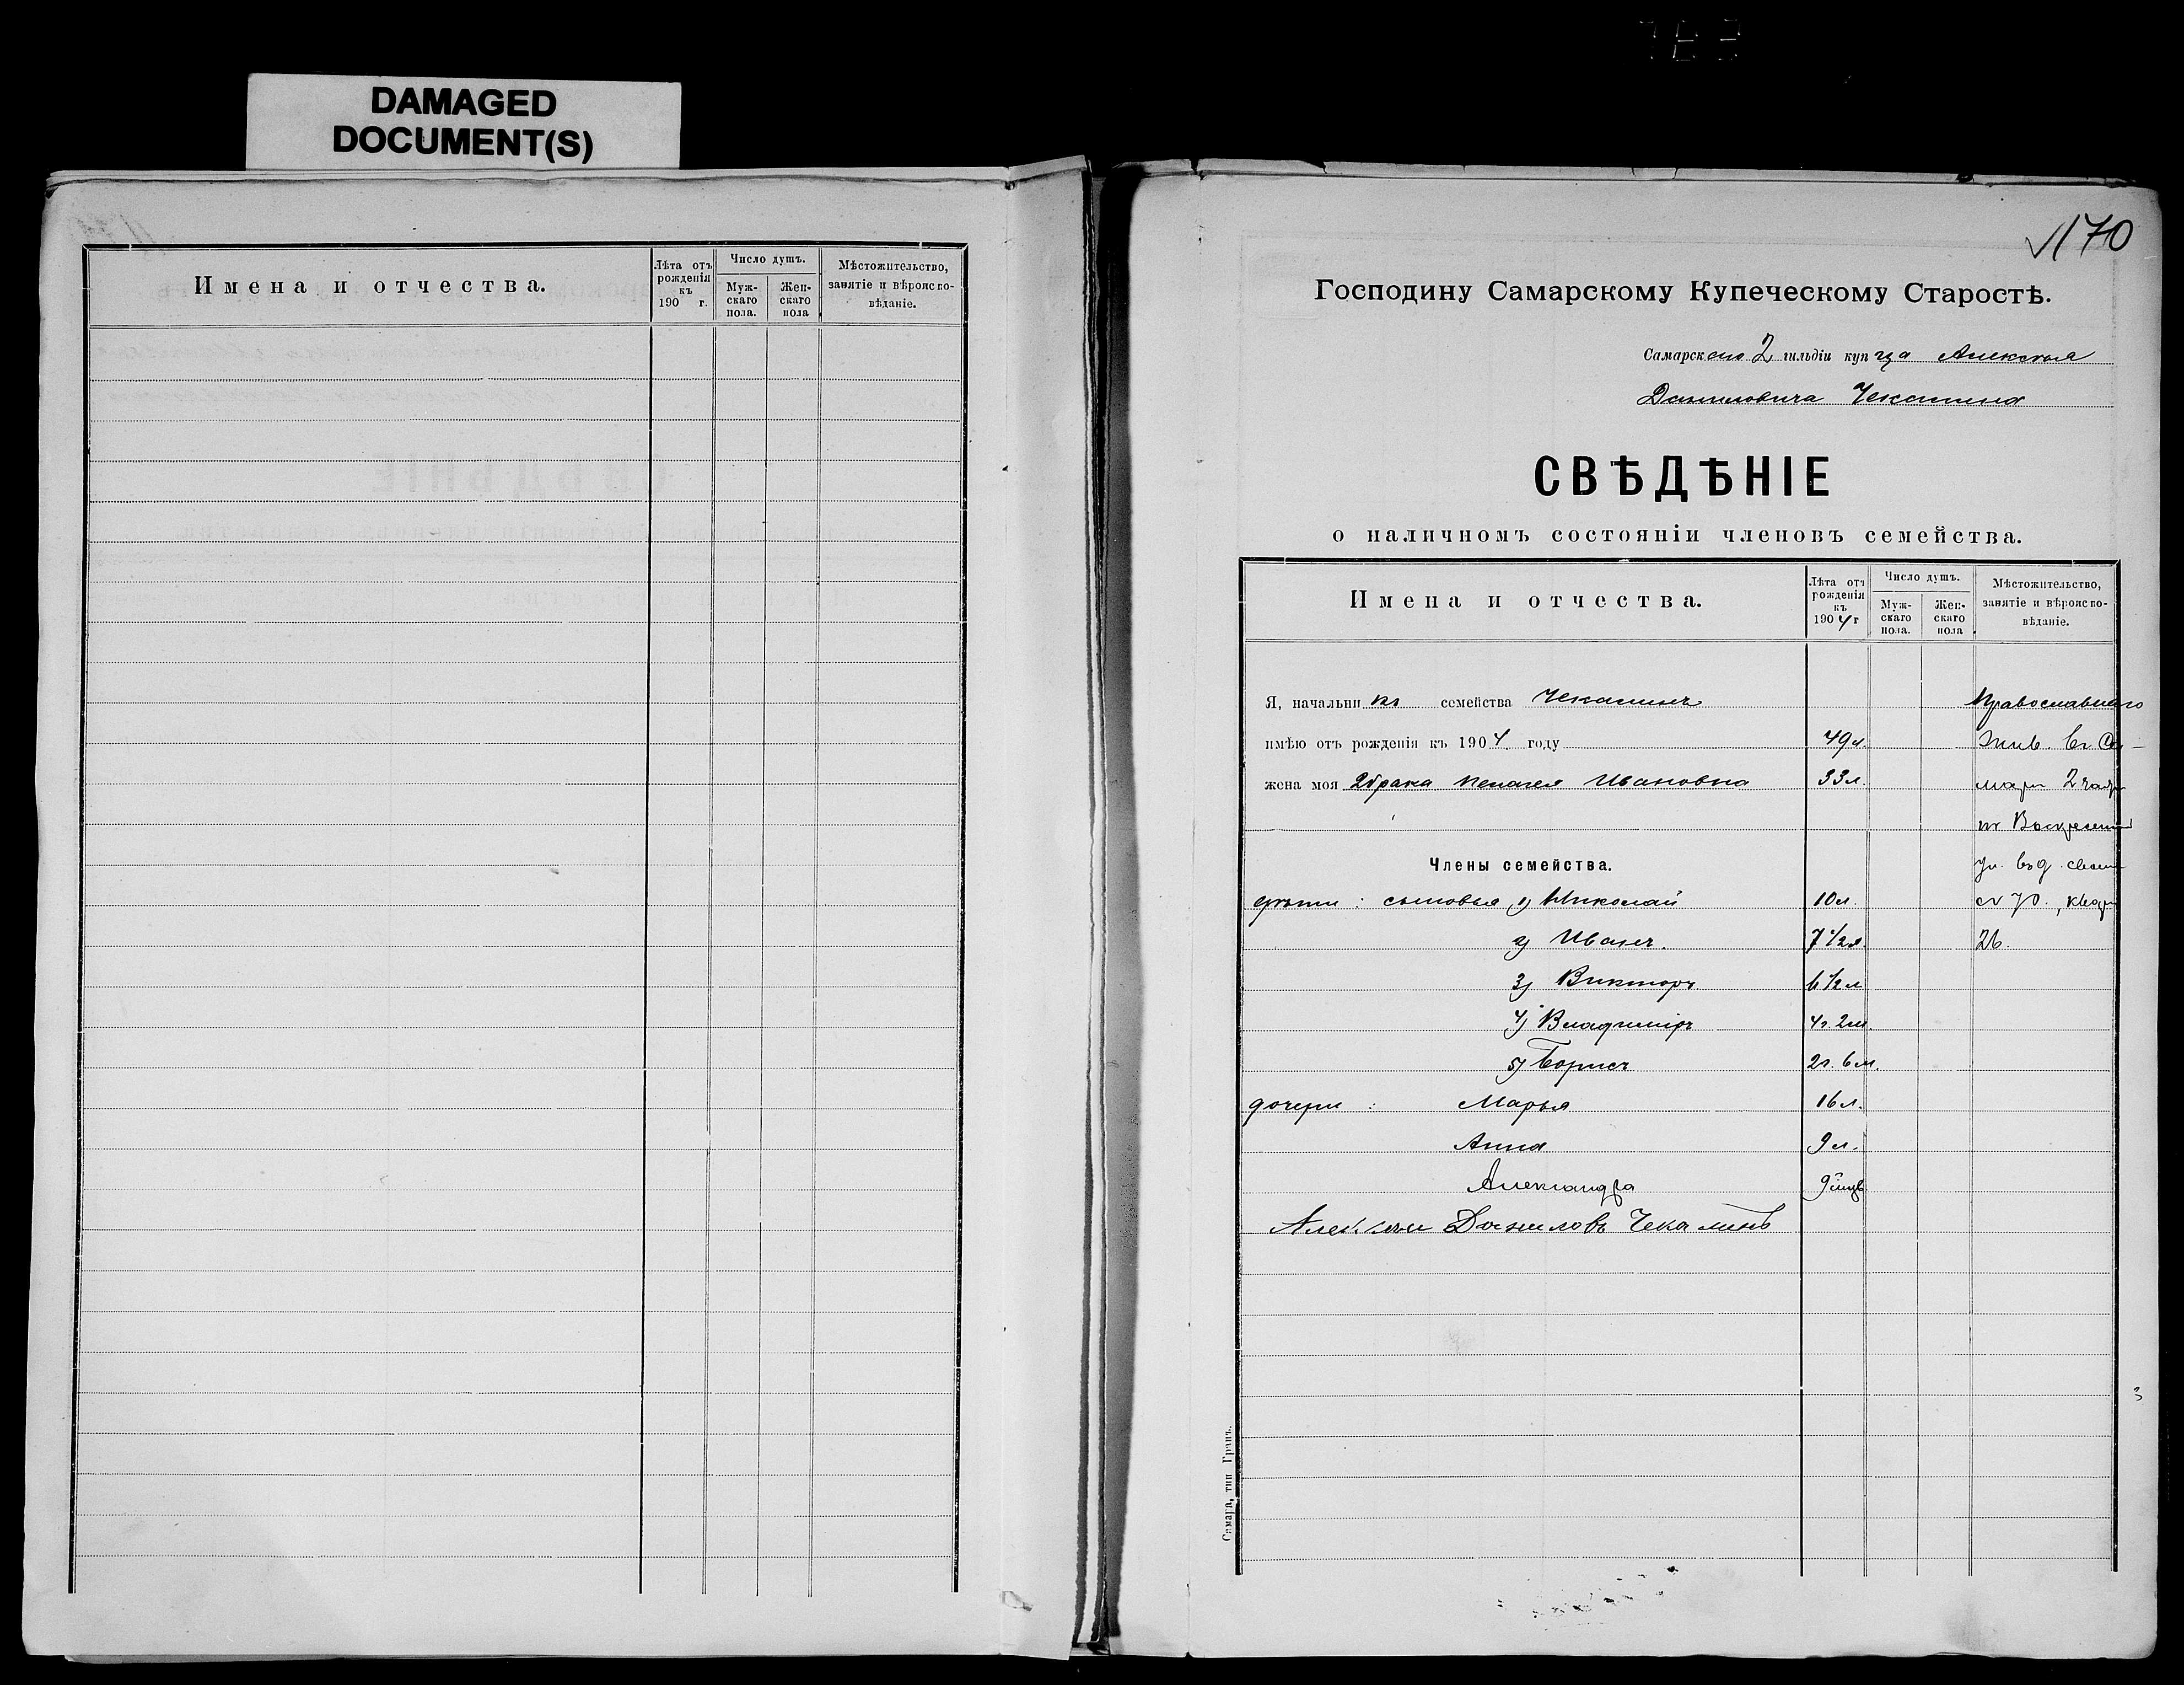 DAMAGED
DOCUMENT(S)
Имена и отчества.
Лѣта отъ рожденія къ 190 г.
Число душъ.
Муж-скаго пола.
Жен-скаго пола
Мѣстожительство, занятіе и вѣроиспо-вѣданіе.
170
Господину Самарскому Купеческому Старостѣ.
Самарскаго 2 гильдіи купца Алексѣя
Даниловича Чекалина
СВѢДѢНІЕ
о наличномъ состояніи членовъ семейства.
Имена и отчества.
Лѣта отъ рожденія къ 1904 г
Число душъ.
Муж-скаго пола.
Жен-скаго пола
Мѣстожительство, занятіе и вѣроиспо-вѣданіе.
Я, начальникъ семейства Чекалинъ Православнаго
имѣю отъ рожденія къ 1904 году 49 л. Жив. въ Са-
жена моя 2 брака Пелагея Ивановна 33 л. марѣ 2 части
по Воскресенской
Члены семейства. ул. въ д. своемъ
дѣти: сыновья 1) Николай 10 л. № 70., кварт
2) Иванъ. 7 1/2 л. 26.
3) Викторъ 6 1/2 л
4) Владиміръ 4 г. 2 м.
5) Борисъ 2 г. 6 м.
дочери: Марья 16 л.
Анна 9 л.
Александра
Алексѣй Даниловъ Чекалинъ
Самара, тип Гранъ.